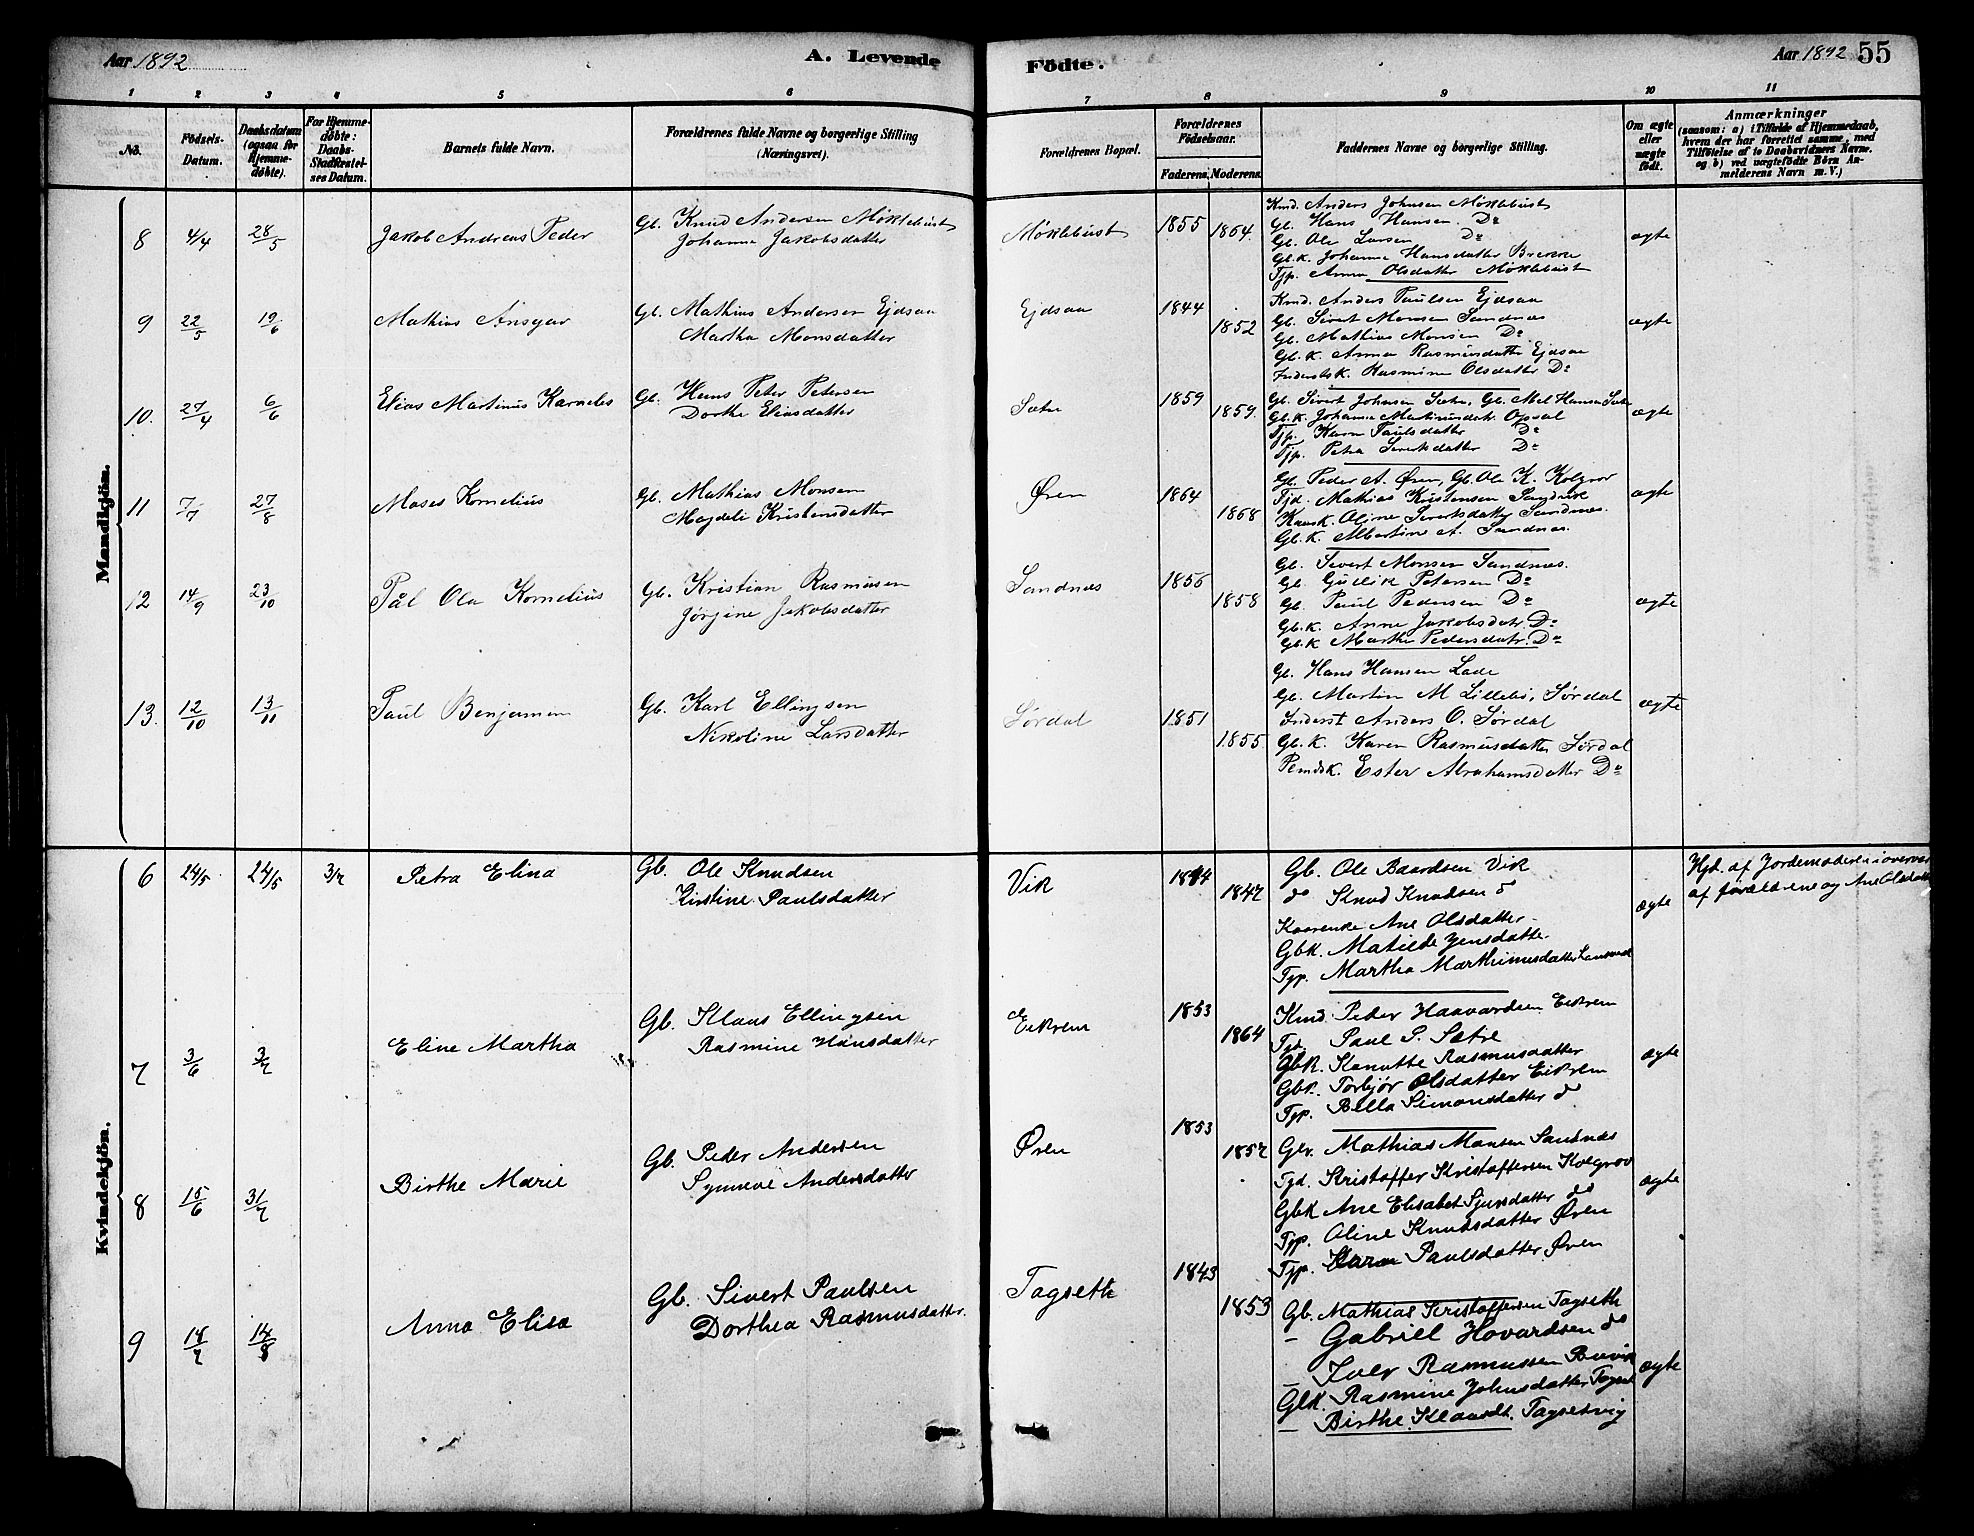 Aar 1892
A. Levende
Födte.
Aar 1892
55
1 2 3 4 5 6 7 8 9 10 11
No.
Födsels-Datum.
Daabsdatum (ogsaa for Hjemme-döbte).
For Hjemme-döbte: Daabs-Stadfæstel-ses Datum.
Barnets fulde Navn.
Forældrenes fulde Navne og borgerlige Stilling (Næringsvei).
Forældrenes Bopæl.
Forældrenes Födselsaar.
Faderens. Moderens.
Faddernes Navne og borgerlige Stilling.
Om ægte eller uægte födt.
Anmærkninger
(saasom: a) i Tilfælde af Hjemmedaab, hvem der har forrettet samme, med Tilföielse af to Daabsvidners Navne. og b) ved uægtefödte Börn Anmelderens Navn m. V.)
Mandkjön.
8 4/4 28/5 Jakob Andreas Peder
Gb. Knud Andersen Möklebust
Johanne Jakobsdatter
Möklebust 1855 1864
Kmd. Anders Johnsen Möklebust
Gb. Hans Hansen Do
Gb. Ole Larsen Do
Gb.K. Johanne Hansdatter Brekke
Tjp. Anna Olsdatter Möklebust
ægte
9 22/5 19/6 Mathias Ansgar
Gb. Mathias Andersen Ejdsaa
Martha Monsdatter
Ejdsaa 1844 1852
Kmd. Anders Paulsen Ejdsaa
Gb. Sivert Monsen Sandnes
Gb. Mathias Monsen Do
Gb.K. Anna Rasmusdatter Ejdsaa
Inderstk. Rasmine Olsdatter Do
ægte
10. 27/4 6/6 Elias Martinus Karneles
Gb. Hans Peter Petersen
Dorthe Eliasdatter
Sætre 1859 1859.
Gb. Sivert Johnsen Sætre, Gb. Mel Hansen Sætre
Gb.K. Johanne Martinusdatr. Opsal
Tjp. Karen Paulsdatter Do
Tjp. Petra Sivertsdatter Do
ægte
11 7/7 27/8 Moses Kornelius
Gb. Mathias Monsen
Magdeli Kristensdatter
Øren 1864 1868
Gb. Peder A. Øren, Gb. Ole K. Kolgrov
Tjd. Mathias Kristensen Sandvik
Kaarsk. Oline Sivertsdatter Sandnes.
Gb.K. Albertine A. Sandnes.
ægte
12 14/9 23/10 Pål Ola Kornelius
Gb. Kristian Rasmusen
Jørgine Jakobsdatter
Sandnes 1856 1858
Gb. Sivert Monsen Sandnes.
Gb. Gullik Petersen Do
Gb. Paul Pedersen Do
Gb.K. Anne Jakobsdatr. Do
Gb.K Marthe Pedersdatr. Do
ægte
13. 12/10 13/11 Paul Benjamin
Gb. Karl Ellingsen
Nikoline Larsdatter
Sørdal 1851 1855.
Gb. Hans Hansen Lade
Gb. Martin M Lillebö, Sørdal
Inderst Anders O. Sørdal
Gb.K. Karen Rasmusdatter Sørdal
Pemdsk. Ester Abrahamsdatter Do
ægte
Kvindekjön.
6 24/5 24/5 3/7 Petra Elina
Gb. Ole Knudsen
Kirstine Paulsdatter
Vik 1844 1847
Gb. Ole Baardsen Vik
do Knud Knudsen do
Kaarenke Ane Olsdatter
GbK. Matilde Jensdatter
Tjp. Martha Marthinusdatter
ægte
Hjd. af Jordemoderen i overvær
af forældrene og Ane Olsdatter
7 3/6 3/7 Eline Martha
Gb. Klaus Ellingsen
Rasmine Hansdatter
Eikrem 1853 1864
Kmd. Peder Haavardsen Eikrem
Tjd. Paul P. Sætre
GbK. Kanutte Rasmusdatter
GbK. Torbjør Olsdatter Eikrem
Tjp. Bella Simonsdatter do
ægte
8 15/6 31/7 Birthe Marie
Gb. Peder Andersen
Synneve Andersdatter
Øren 1853 1857
Gbr. Mathias Monsen Sandnes
Tjd. Kristoffer Kristoffersen Kolgrov
GbK Ane Elisabet Sjursdatter do
Tjp. Oline Knudsdatter Øren
Tjp. Karen Paulsdatter Øren
ægte
9 14/7 14/8 Anna Elisa
Gb. Sivert Paulsen
Dorthea Rasmusdatter
Tagseth 1843 1853
Gb. Mathias Kristoffersen Tagseth
— Gabriel Hovardsen do
— Iver Rasmussen
GbK. Rasmine Johnsdatter Tagset
— Birthe Klausdt. Tagsetvig
ægte